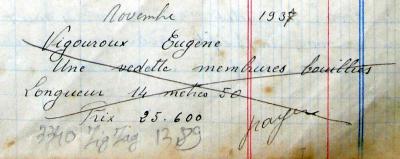 Novembre 1937
Vigouroux Eugène
Une vedette membrures bouillies
Longueur 14 mètres 50
Prix 25.600
payée
3340 Zig Zag 1389